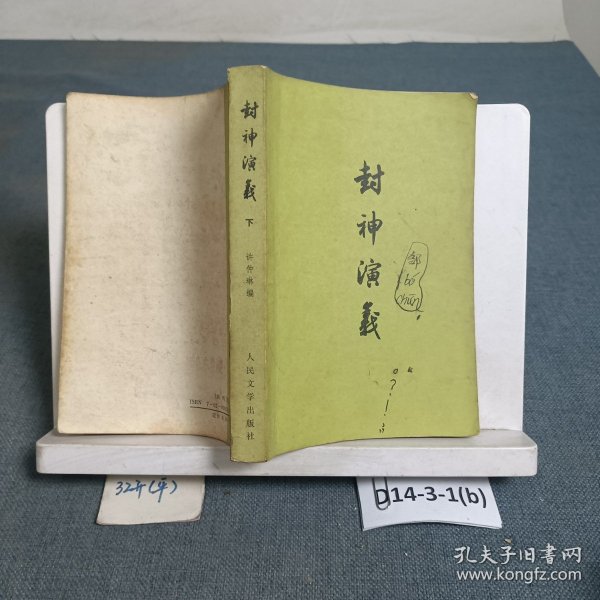 封神演義
下
许仲琳编
人民文学出版社
封神演義
bó
ISBN 7-02-
32开(平)
D14-3-1(b)
孔夫子旧书网
www.kongfz.com